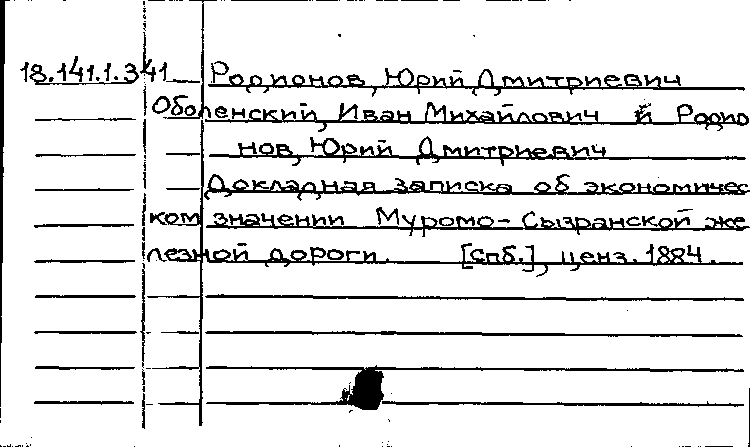 18.141.1.341 Родионов, Юрий Дмитриевич
Оболенский, Иван Михайлович й Родио
нов, Юрий Дмитриевич
Докладная записка об экономичес
ком значении Муромо-Сызранской же
лезной дороги. [Спб.], ценз. 1884.